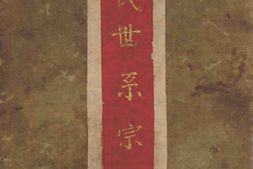 氏世系宗